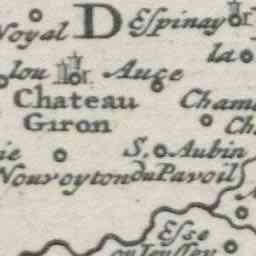 Noyal D Eſpinay
la
lou Auge
Chateau Cham
Giron Ch
ie S. Aubin
Nouroyton du Pavoil
Eſſe